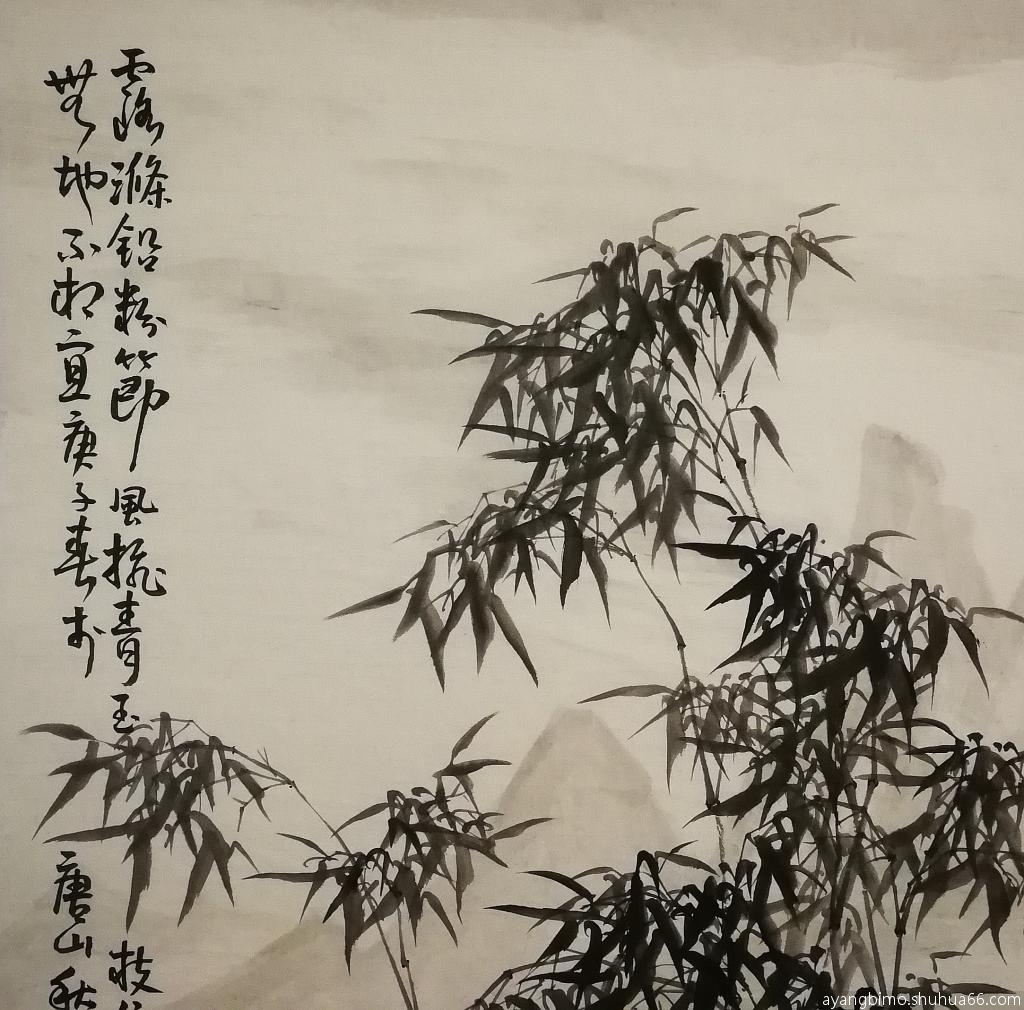 露滌鉛粉節風搖青玉枝
無地不相宜庚子春於唐山秋
ayangbimo.shuhua66.com